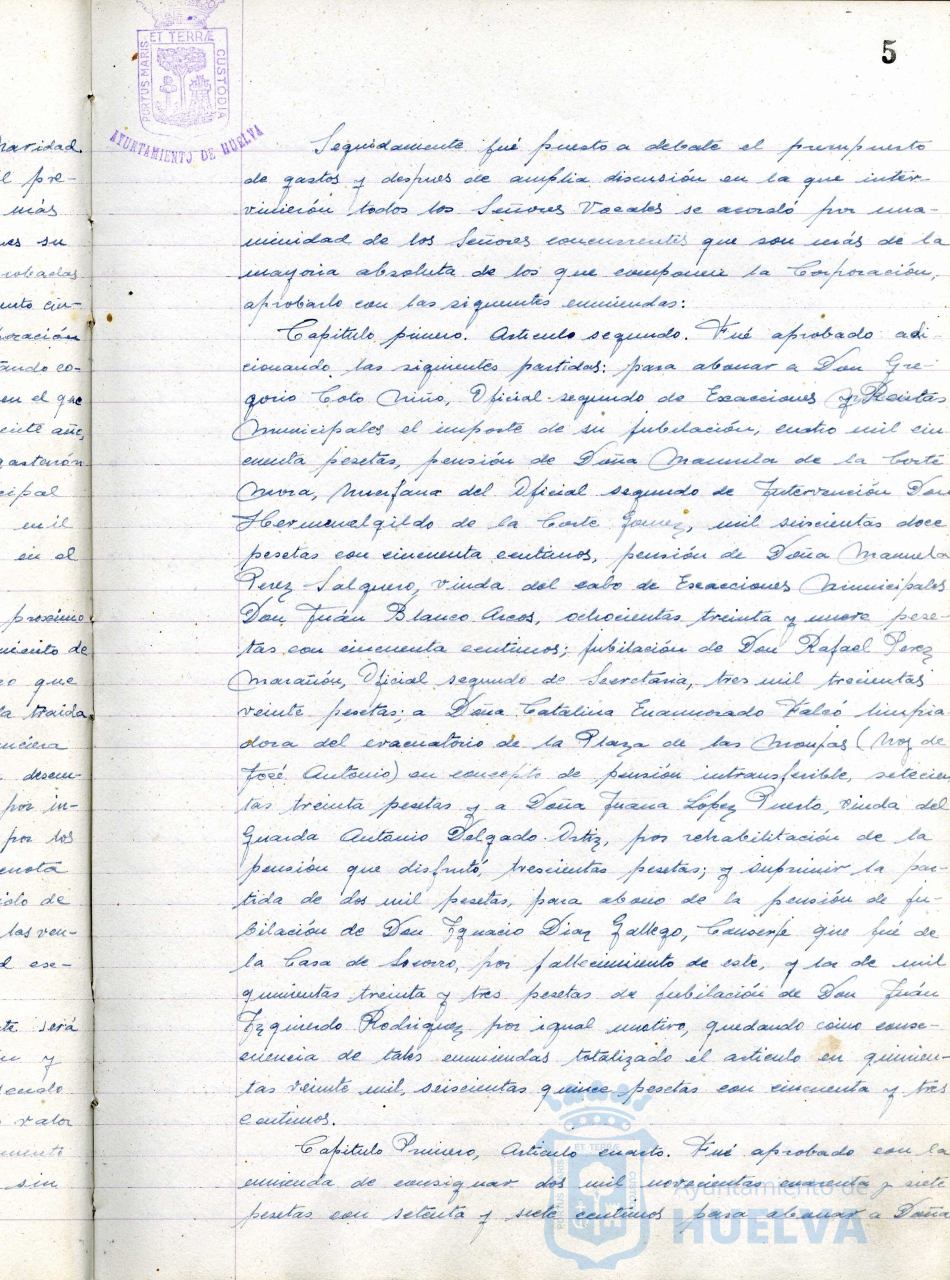 5
ET TERRÆ
PORTUS MARIS
CUSTODIA
AYUNTAMIENTO DE HUELVA
Seguidamente fué puesto a debate el presupuesto
de gastos y despues de amplia discusión en la que inter-
vinierón todos los Señores Vocales se acordó por una-
nimidad de los Señores concurrentes que son más de la
mayoria absoluta de los que componen la Corporación,
aprobarlo con las siguientes enmiendas:
Capitulo primero. Articulo segundo. Fué aprobado adi-
cionando, las siguientes partidas: para abonar a Don Gre-
gorio Coto Niño, Oficial segundo de Exacciones y Rentas
Municipales el importe de su jubilación, cuatro mil cin-
cuenta pesetas, pensión de Doña Manuela de la Corte
Mora, huerfana del Oficial segundo de Intervención Don
Hermenalgildo de la Corte Gomez, mil seiscientas doce
pesetas con cincuenta centimos, pensión de Doña Manuela
Perez Salguero, viuda del cabo de Exacciones Municipales
Don Juán Blanco Arcos, ochocientas treinta y nueve pese-
tas con cincuenta centimos; jubilación de Don Rafael Perez
Marañón, Oficial segundo de Secretaria, tres mil trecientas
veinte pesetas; a Doña Catalina Enamorado Falcó limpia
dora del evacuatorio de la Plaza de las Monjas (hoy de
José Antonio) en concepto de pensión intransferible, setecien
tas treinta pesetas y a Doña Juana López Puerto, viuda del
Guarda Antonio Delgado Ortiz, por rehabilitación de la
pensión que disfrutó, trescientas pesetas; y suprimir la par-
tida de dos mil pesetas, para abono de la pensión de ju-
bilación de Don Ignacio Diaz Gallego, Conserje que fué de
la Casa de Socorro, por fallecimiento de este, y la de mil
quinientas treinta y tres pesetas de jubilación de Don Juán
Izquierdo Rodriguez por igual motivo, quedando como conse-
cuencia de tales enmiendas totalizado el articulo en quinien-
tas veinte mil, seiscientas quince pesetas con cincuenta y tres
centimos.
Capitulo Primero, Articulo cuarto. Fué aprobado con la
enmienda de consignar dos mil novecientas cuarenta y siete
pesetas con setenta y siete centimos para abonar a Doña
Navidad
l pre-
más
es su
robadas
ento cin-
poración
ando co-
en el que
ciente año,
gastarón
cipal
en il
en el
proximo
miento de
co que
la traida
nciera
desem-
por in-
por los
cuota
ido de
las ven-
d ese-
te será
y
valor
mento
sin
ET TERRÆ
PORTUS MARIS
CUSTODIA
Ayuntamiento de
HUELVA